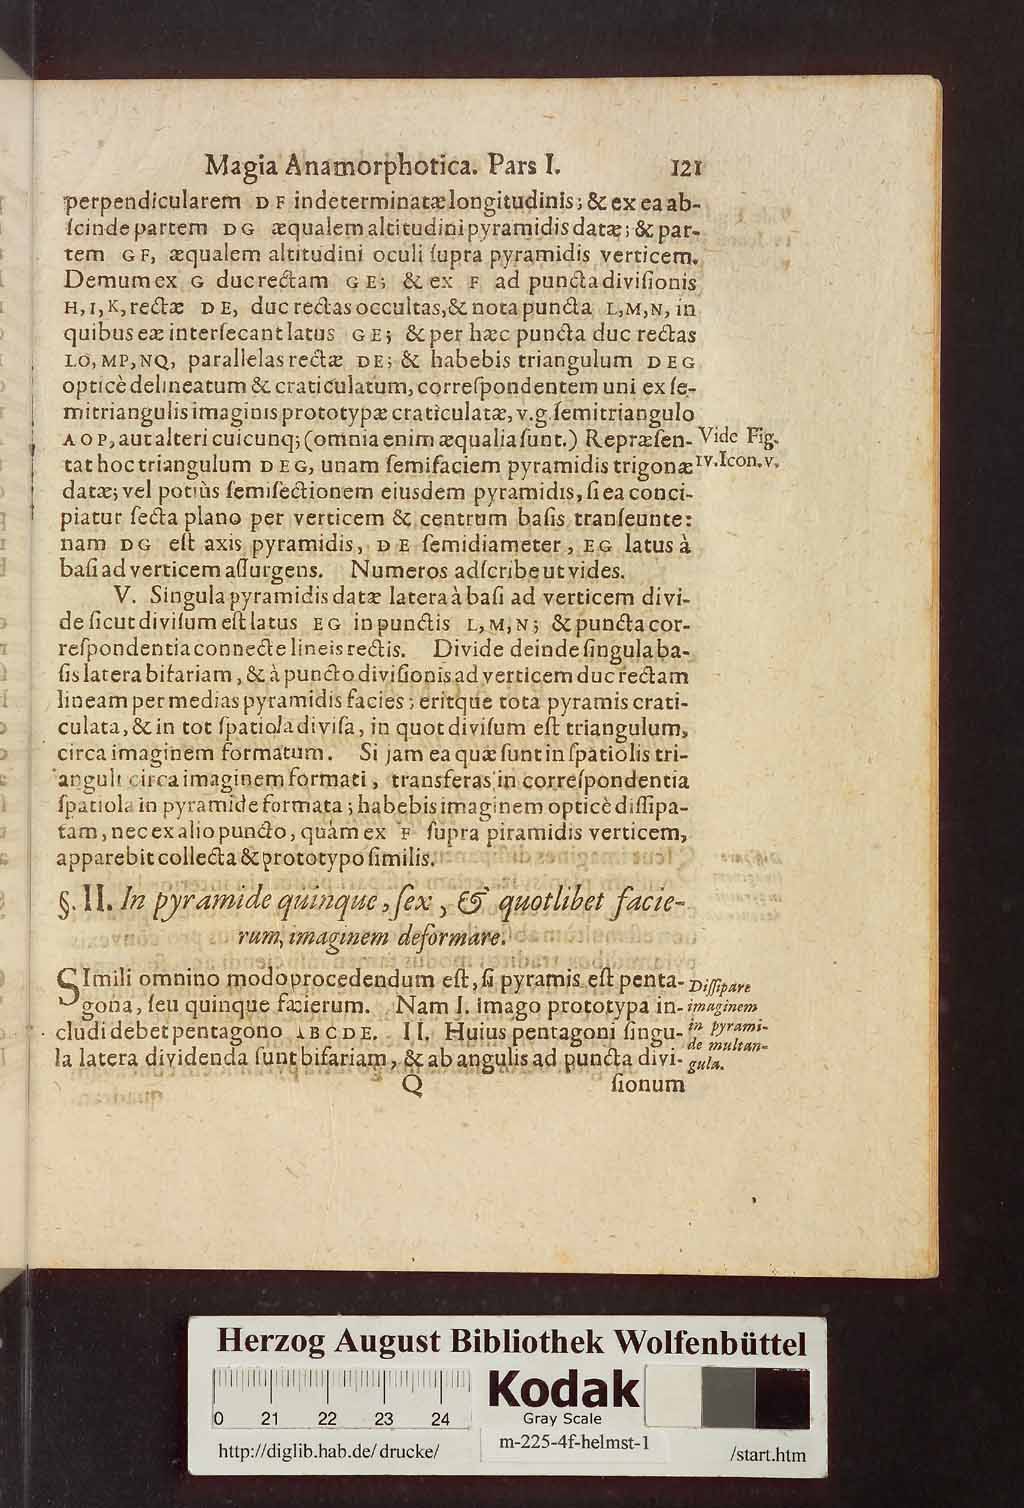 Magia Anamorphotica. Pars I. 121
perpendicularem D F indeterminatæ longitudinis; & ex ea ab-
ſcinde partem DG æqualem altitudini pyramidis datæ; & par-
tem GF, æqualem altitudini oculi ſupra pyramidis verticem.
Demum ex G duc rectam GE; & ex F ad puncta diviſionis
H, I, K, rectæ DE, duc rectas occultas, & nota puncta L, M, N, in
quibus eæ interſecant latus GE; & per hæc puncta duc rectas
LO, MP, NQ, parallelas rectæ DE; & habebis triangulum DEG
opticè delineatum & craticulatum, correſpondentem uni ex ſe-
mitriangulis imaginis prototypæ craticulatæ, v. g. ſemitriangulo
AOP, aut alteri cuicunq; (omnia enim æqualia ſunt.) Repræſen-
tat hoc triangulum DEG, unam ſemifaciem pyramidis trigonæ
datæ; vel potiùs ſemiſectionem eiusdem pyramidis, ſi ea conci-
piatur ſecta plano per verticem & centrum baſis tranſeunte:
nam DG eſt axis pyramidis, DE ſemidiameter, EG latus à
baſi ad verticem aſſurgens. Numeros adſcribe ut vides.
Vide Fig.
IV. Icon. v.
V. Singula pyramidis datæ latera à baſi ad verticem divi-
de ſicut diviſum eſt latus EG in punctis L, M, N; & puncta cor-
reſpondentia connecte lineis rectis. Divide deinde ſingula ba-
ſis latera bifariam, & à puncto diviſionis ad verticem duc rectam
lineam per medias pyramidis facies; eritque tota pyramis crati-
culata, & in tot ſpatiola diviſa, in quot diviſum eſt triangulum,
circa imaginem formatum. Si jam ea quæ ſunt in ſpatiolis tri-
anguli circa imaginem formati, transferas in correſpondentia
ſpatiola in pyramide formata; habebis imaginem opticè diſſipa-
tam, nec ex alio puncto, quàm ex F ſupra piramidis verticem,
apparebit collecta & prototypo ſimilis.
§. II. In pyramide quinque, ſex, & quotlibet facie-
rum, imaginem deformare.
SImili omnino modo procedendum eſt, ſi pyramis eſt penta-
gona, ſeu quinque facierum. Nam I. imago prototypa in-
cludi debet pentagono ABCDE. II. Huius pentagoni ſingu-
la latera dividenda ſunt bifariam, & ab angulis ad puncta divi-
Diſſipare
imaginem
in pyrami-
de multan-
gula.
Q ſionum
Herzog August Bibliothek Wolfenbüttel
Kodak
Gray Scale
0 21 22 23 24
http://diglib.hab.de/drucke/
m-225-4f-helmst-1
/start.htm